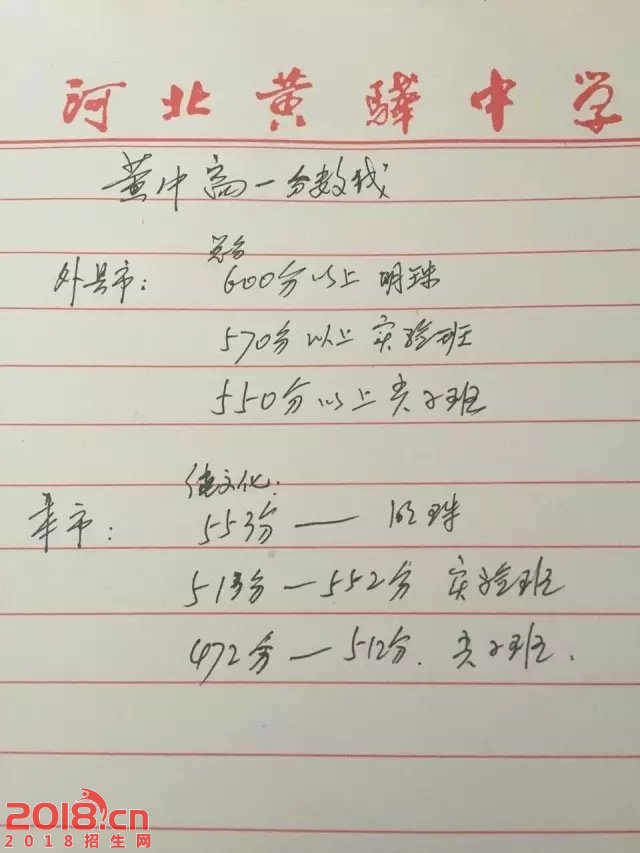 河北黄骅中学
黄中高一分数线
总分
外县市：600分以上 明珠
570分以上 实验班
550分以上 英才班
纯文化.
本市：553分 — 明珠
513分 — 552分 实验班
472分 — 512分. 英才班.
2018.cn
2018招生网